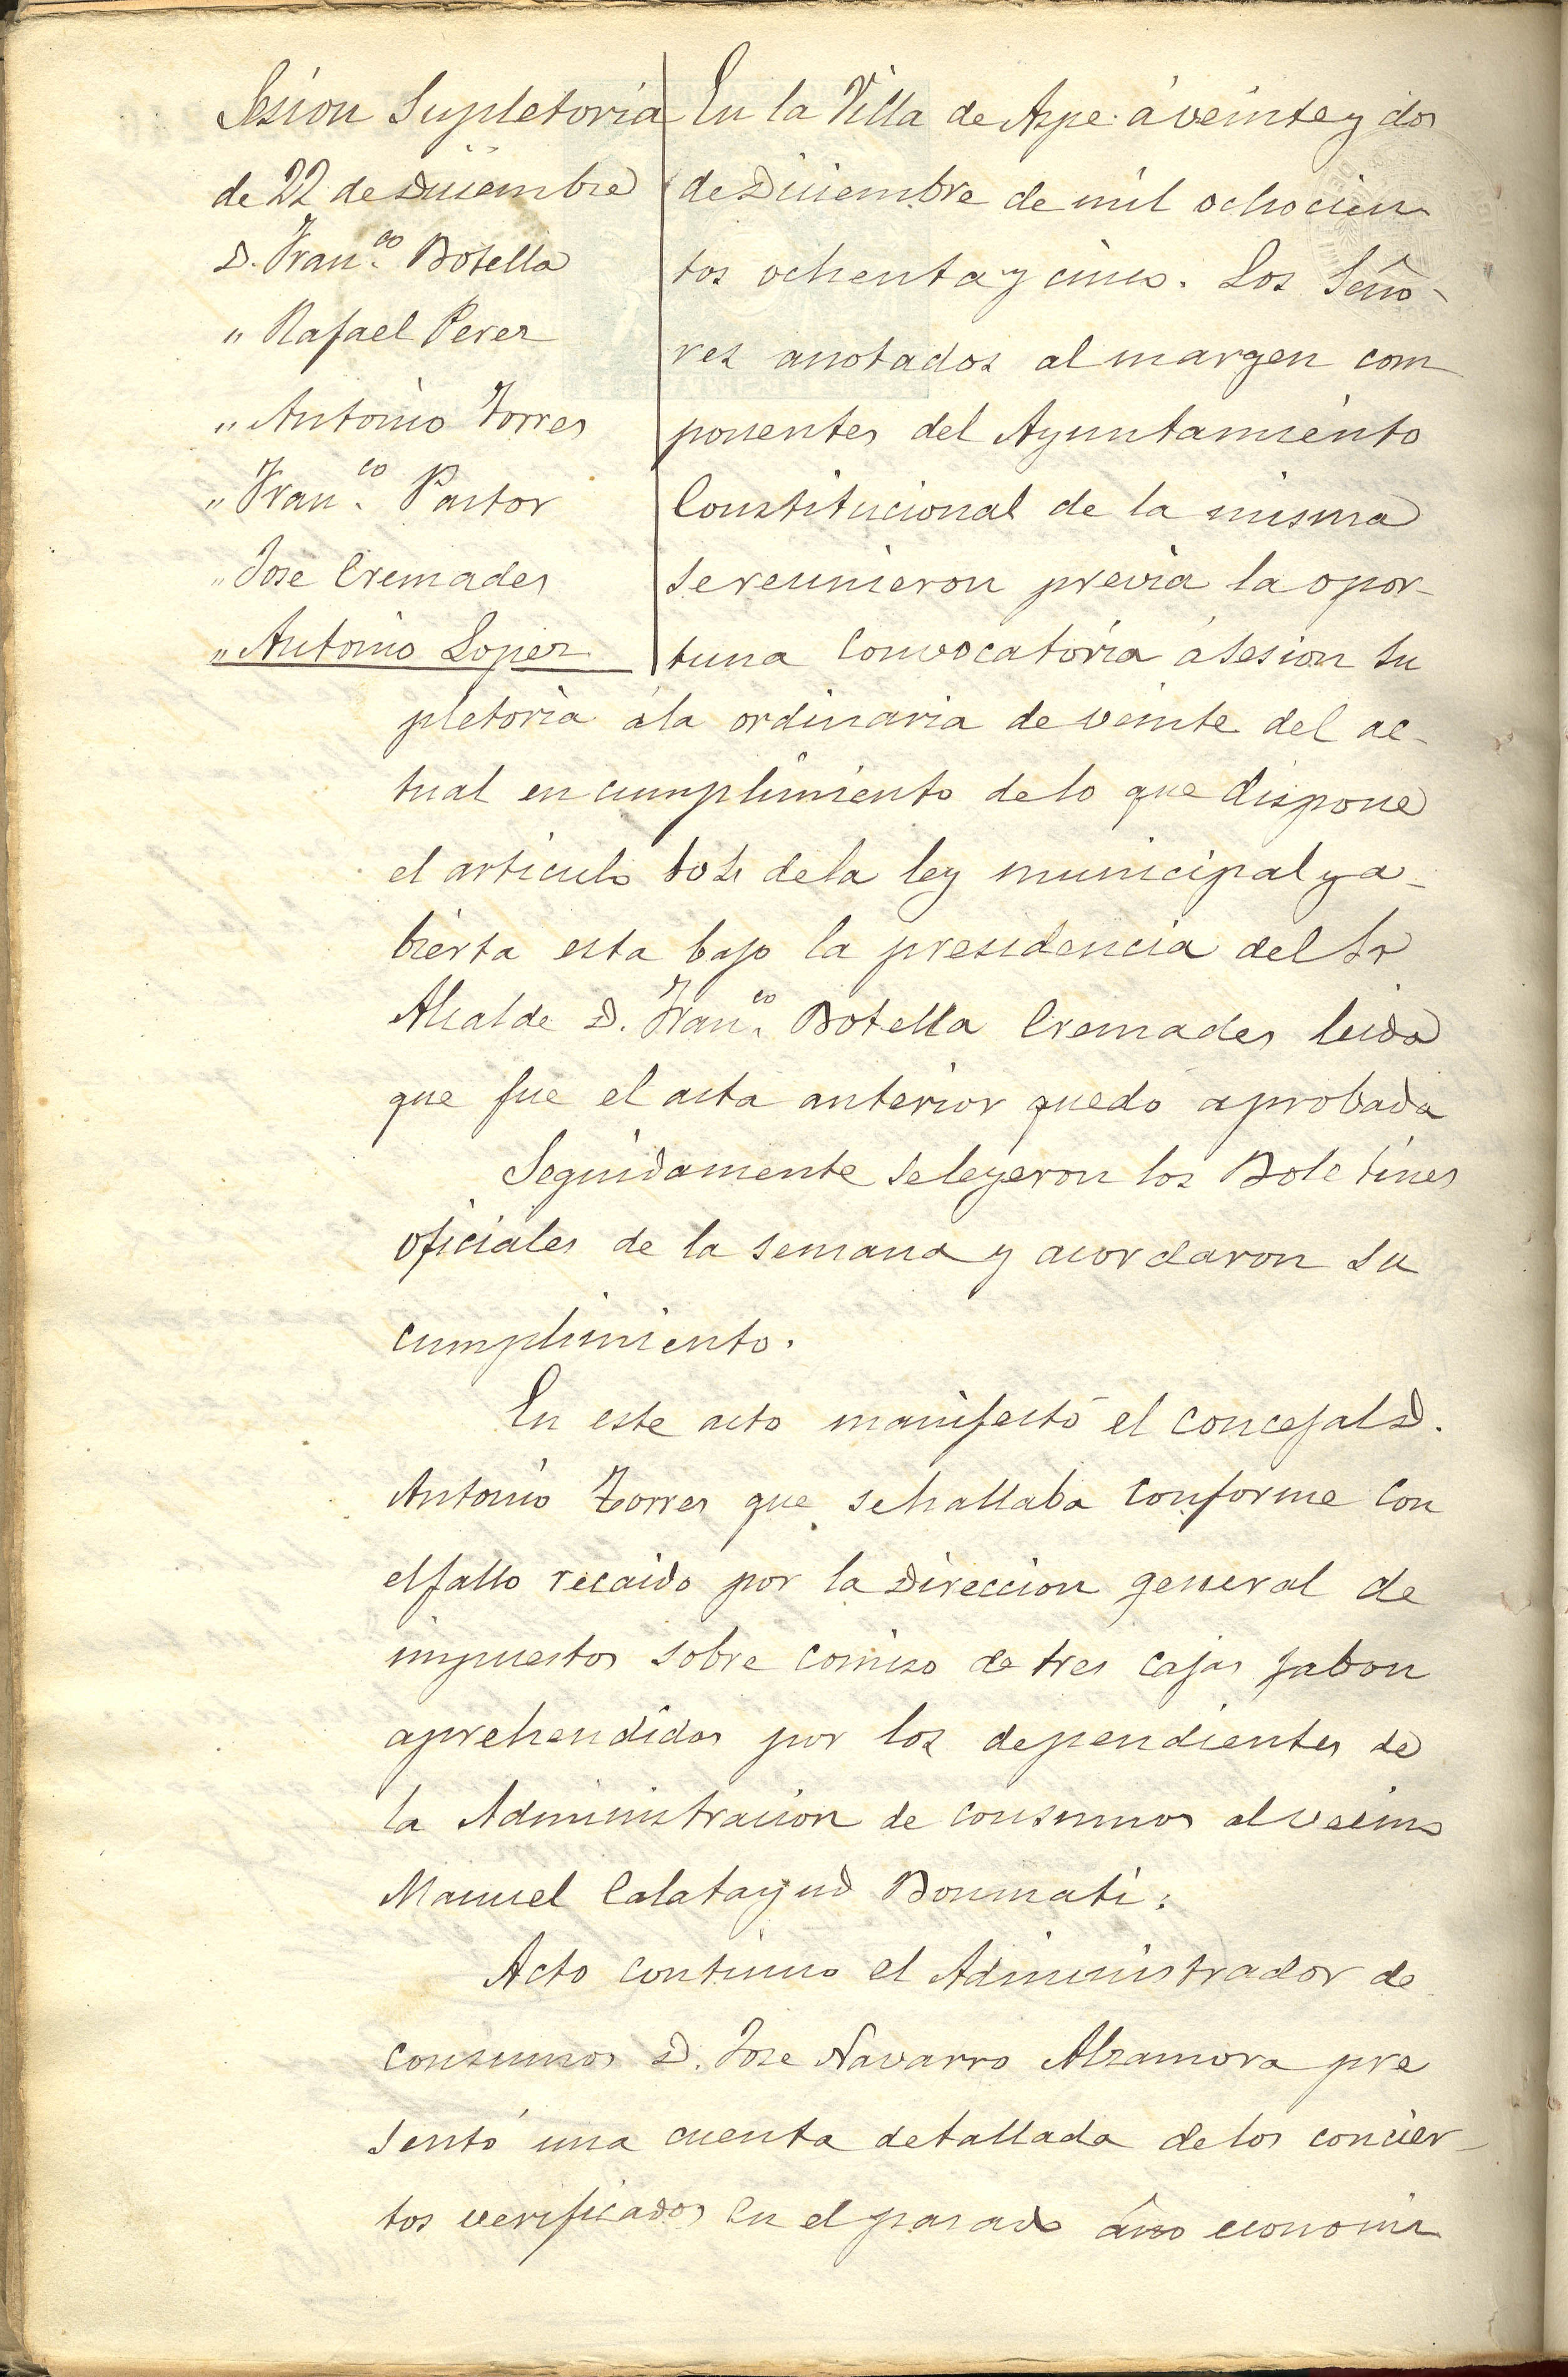 Sesion Supletoria
de 22 de Diciembre
D. Fran.co Botella
" Rafael Perez
" Antonio Torres
" Fran.co Pastor
" Jose Cremades
" Antonio Lopez
En la Villa de Aspe á veinte y dos
de Diciembre de mil ochocien
tos ochenta y cinco. Los Seño-
res anotados al margen com
ponentes del Ayuntamiento
Constitucional de la misma
se reunieron previa la opor-
tuna convocatoria á sesion su
pletoria á la ordinaria de veinte del ac-
tual en cumplimiento de lo que dispone
el articulo 104 de la ley municipal y a-
bierta esta bajo la presidencia del Sr
Alcalde D. Fran.co Botella Cremades leida
que fue el acta anterior quedó aprobada
Seguidamente se leyeron los Boletines
oficiales de la semana y acordaron su
cumplimiento.
En este acto manifestó el concejal D.
Antonio Torres que se hallaba conforme con
el fallo recaido por la Direccion general de
impuestos sobre comiso de tres cajas jabon
aprehendidas por los dependientes de
la Administracion de consumos al vecino
Manuel Calatayud Bonmati.
Acto continuo el Administrador de
consumos D. Jose Navarro Alzamora pre
sentó una cuenta detallada de los concier-
tos verificados en el pasado año economi